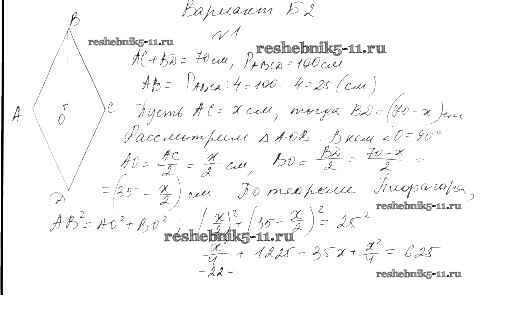 Вариант Б2
№1
B
A
C
O
D
reshebnik5-11.ru
reshebnik5-11.ru
AC + BD = 70 см, P_ABCD = 100 см
AB = P_ABCD : 4 = 100 : 4 = 25 (см)
Пусть AC = x см, тогда BD = (70 - x) см
Рассмотрим △AOB. В нем ∠O = 90°
AO = AC/2 = x/2 см, BO = BD/2 = (70 - x)/2 =
= (35 - x/2) см По теореме Пифагора,
AB² = AO² + BO², (x/2)² + (35 - x/2)² = 25²
reshebnik5-11.ru
x²/4 + 1225 - 35x + x²/4 = 625
-22-
reshebnik5-11.ru